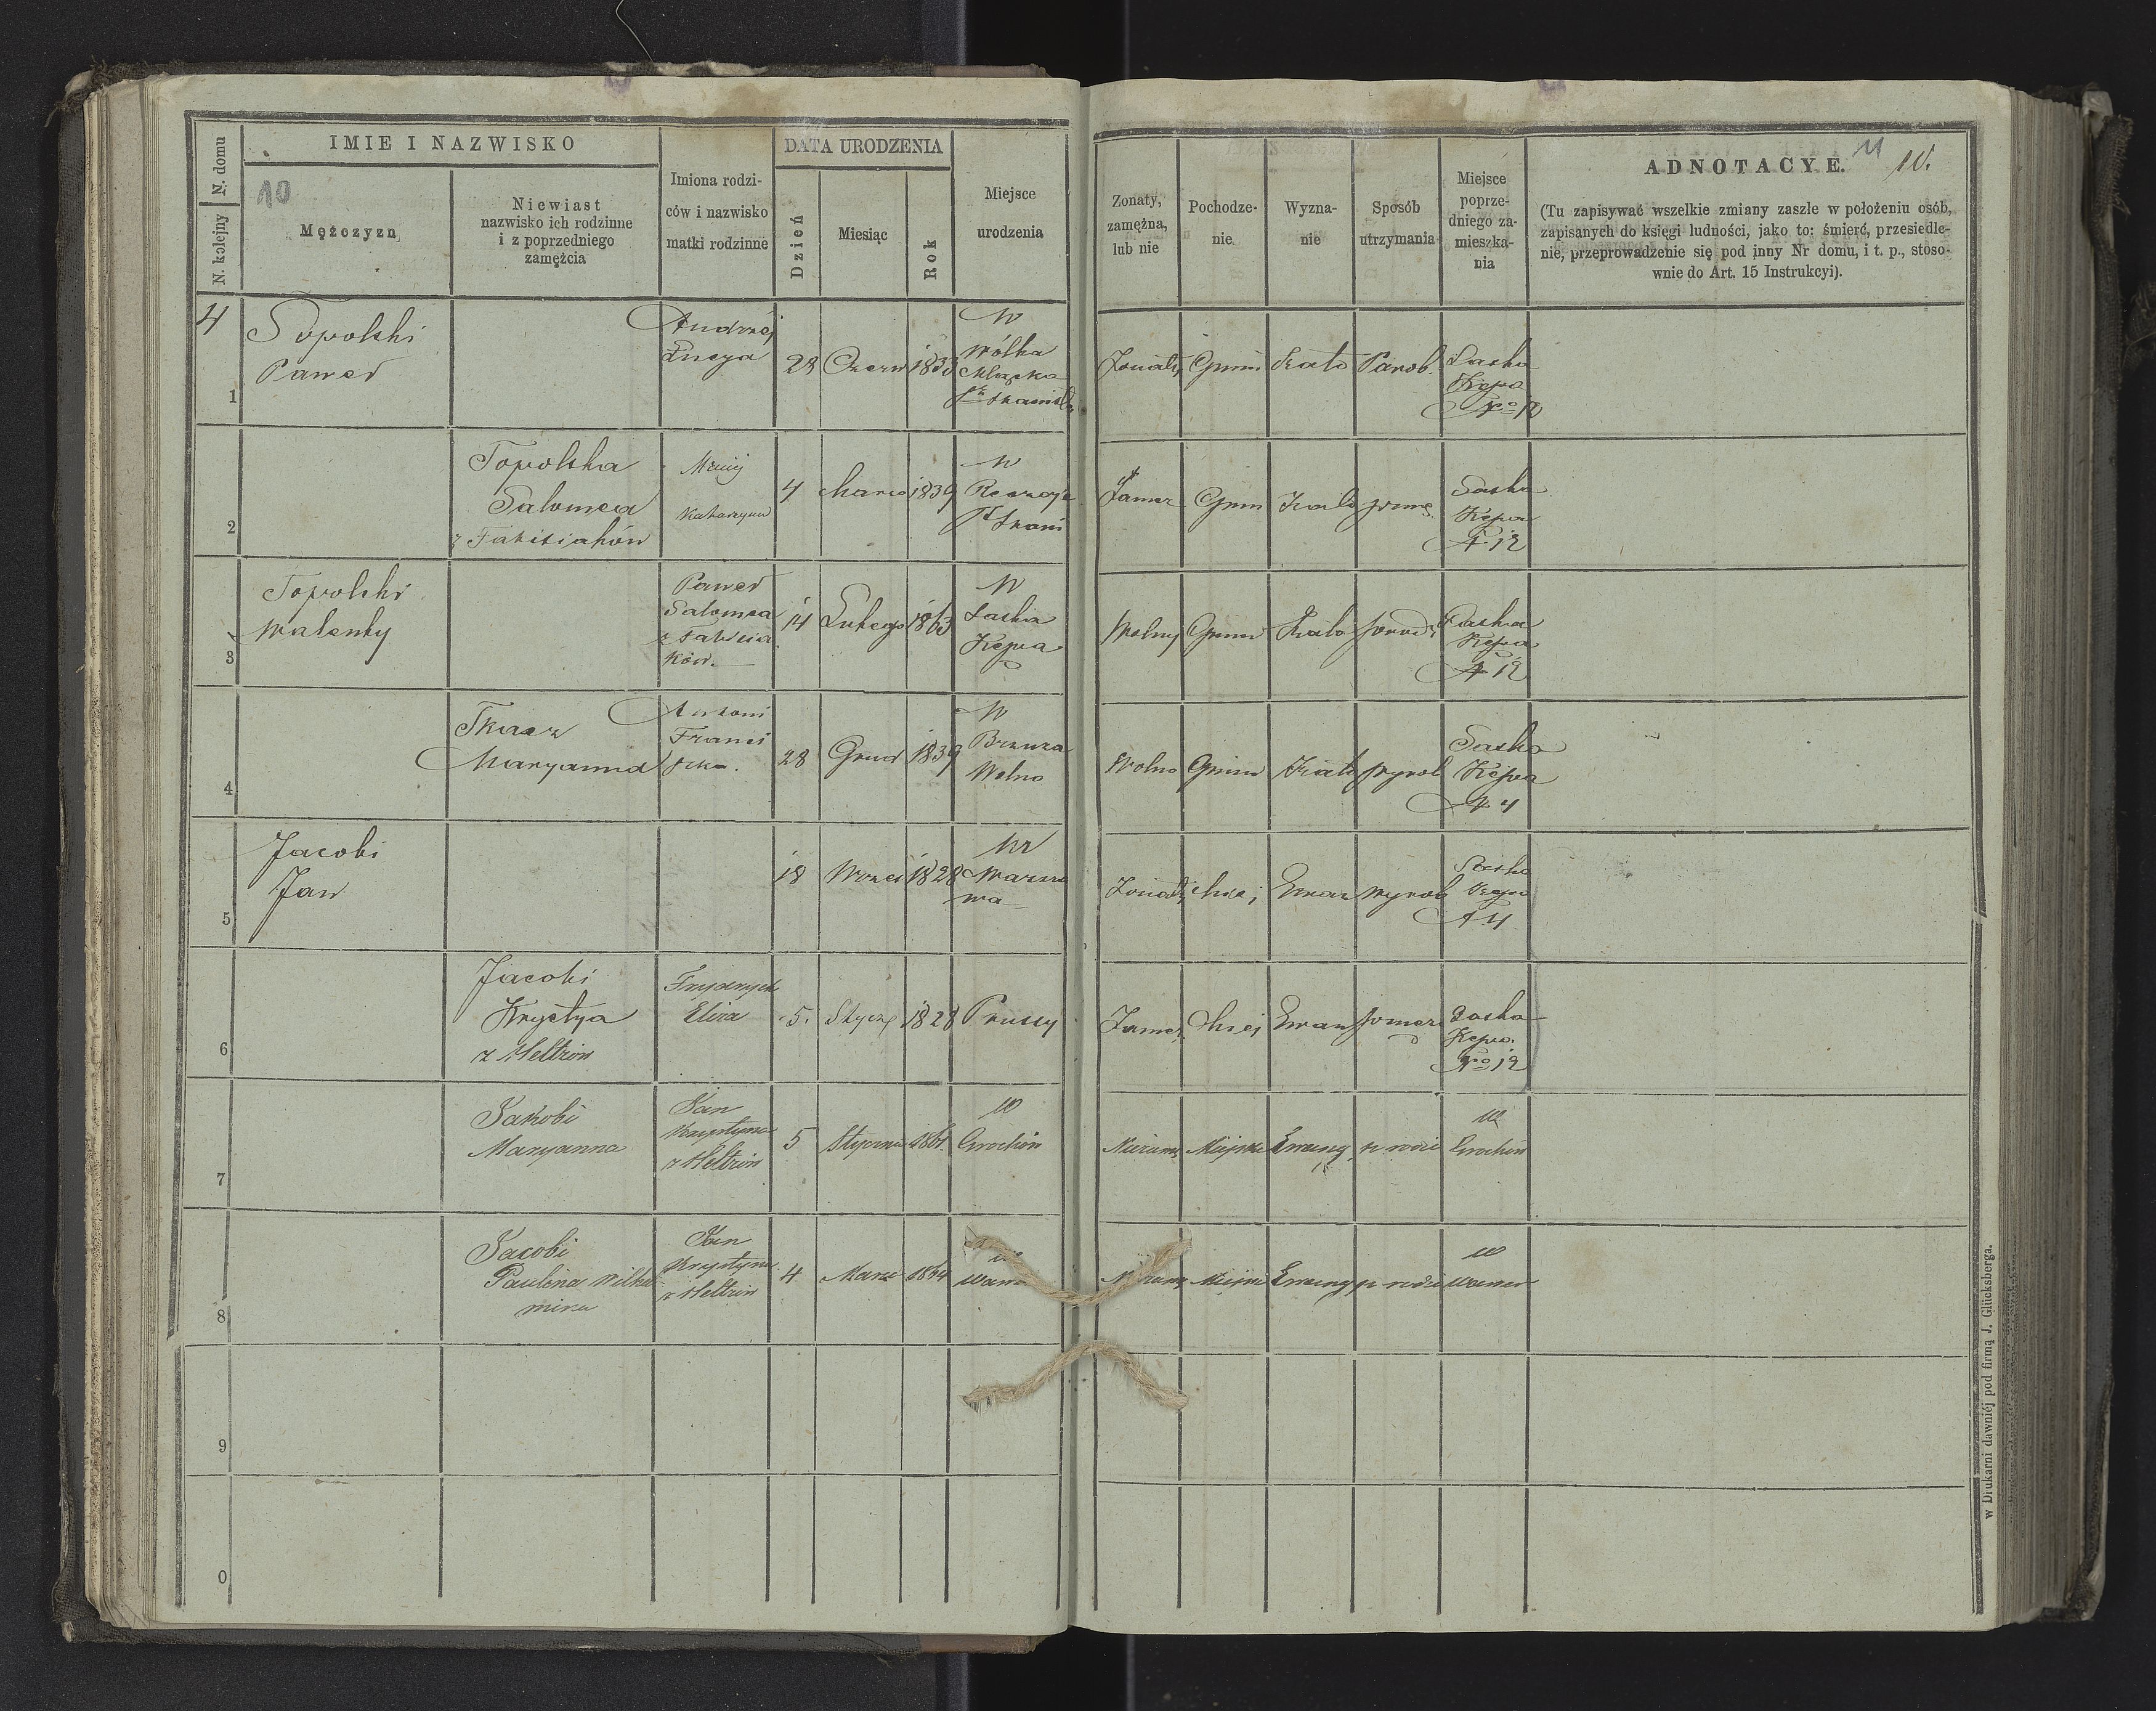 N. domu
N. kolejny
IMIE I NAZWISKO
10
Mężczyzn
Niewiast
nazwisko ich rodzinne
i z poprzedniego
zamężcia
Imiona rodzi-
ców i nazwisko
matki rodzinne
DATA URODZENIA
Dzień
Miesiąc
Rok
Miejsce
urodzenia
Zonaty,
zamężna,
lub nie
Pochodze-
nie
Wyzna-
nie
Sposób
utrzymania
Miejsce
poprze-
dniego za-
mieszka-
nia
ADNOTACYE.
11
10.
(Tu zapisywać wszelkie zmiany zaszłe w położeniu osób,
zapisanych do księgi ludności, jako to: śmierć, przesiedle-
nie, przeprowadzenie się pod inny Nr domu, i t. p., stoso-
wnie do Art. 15 Instrukcyi).
4
1
Topolski
Paweł
Andrzej
Łucya
Czerw
W
Wólka
Gmin
Kato
Parob.
Saska
Kępa
No 12
2
Topolska
Salomea
Katarzyna
4
Marca
1839
W
Zamęz
Gmin
Kato
Saska
Kępa
12
3
Topolski
Walenty
Paweł
Salomea
14
Lutego
1863
W
Saska
Kępa
Wolny
Gmin
Kato
Saska
Kępa
12
4
Tkacz
Maryanna
Antoni
Franci
szka.
28
Grud
1839
W
Wolno
Gmin
Kato
wyrob
Saska
Kępa
4
5
Jacobi
Jan
18
Wrzes
1828
War
wa
wyrob
Saska
Kępa
4
6
Jacobi
Krystya
z Heltzów
Fryderyk
Eliza
5.
Stycz
1828
Prussy
Zamęz
Ewan
Saska
Kępa.
No 12
7
Jakobi
Maryanna
Jan
Krystyna
z Heltzów
5
Stycznia
1861.
w
Grochów
Miejskie
Ewang
p rodzi
w
Grochów
8
Jacobi
Paulina Wilhel
mina
Jan
Krystyna
z Heltzów
4
Marca
1864
w
Wawr
Ewang
p rodzi
w
Wawer
9
0
w Drukarni dawniéj pod firmą J. Glücksberga.